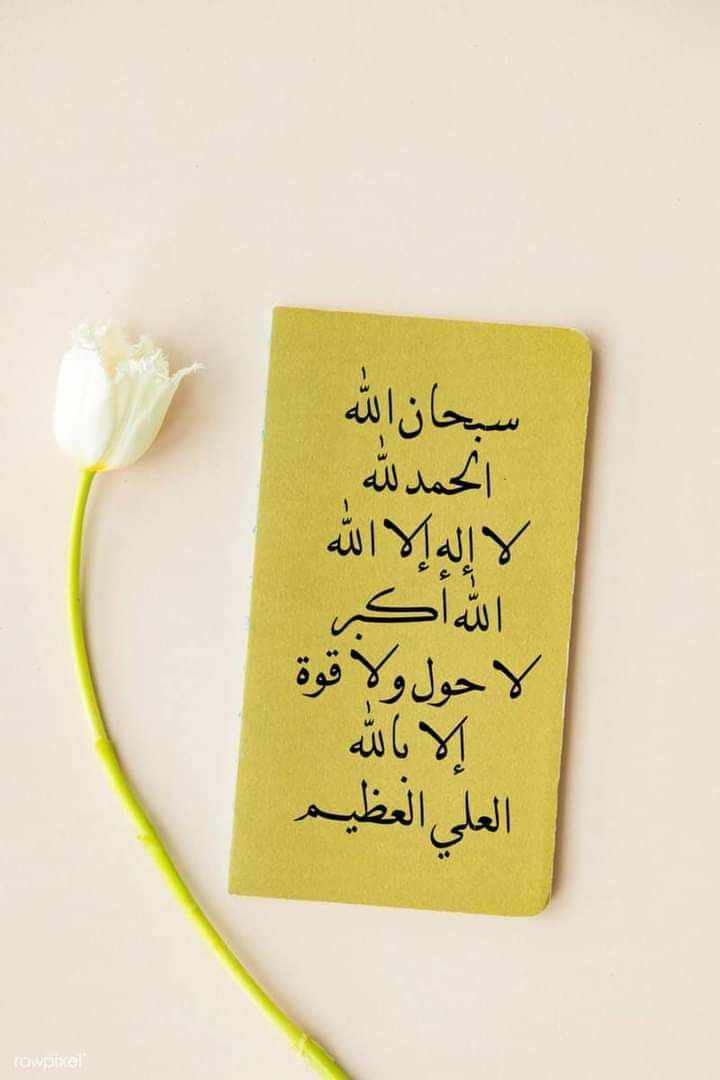 سبحان الله
الحمد لله
لا إله إلا الله
الله أكبر
لا حول ولا قوة
إلا بالله
العلي العظيم
rawpixel